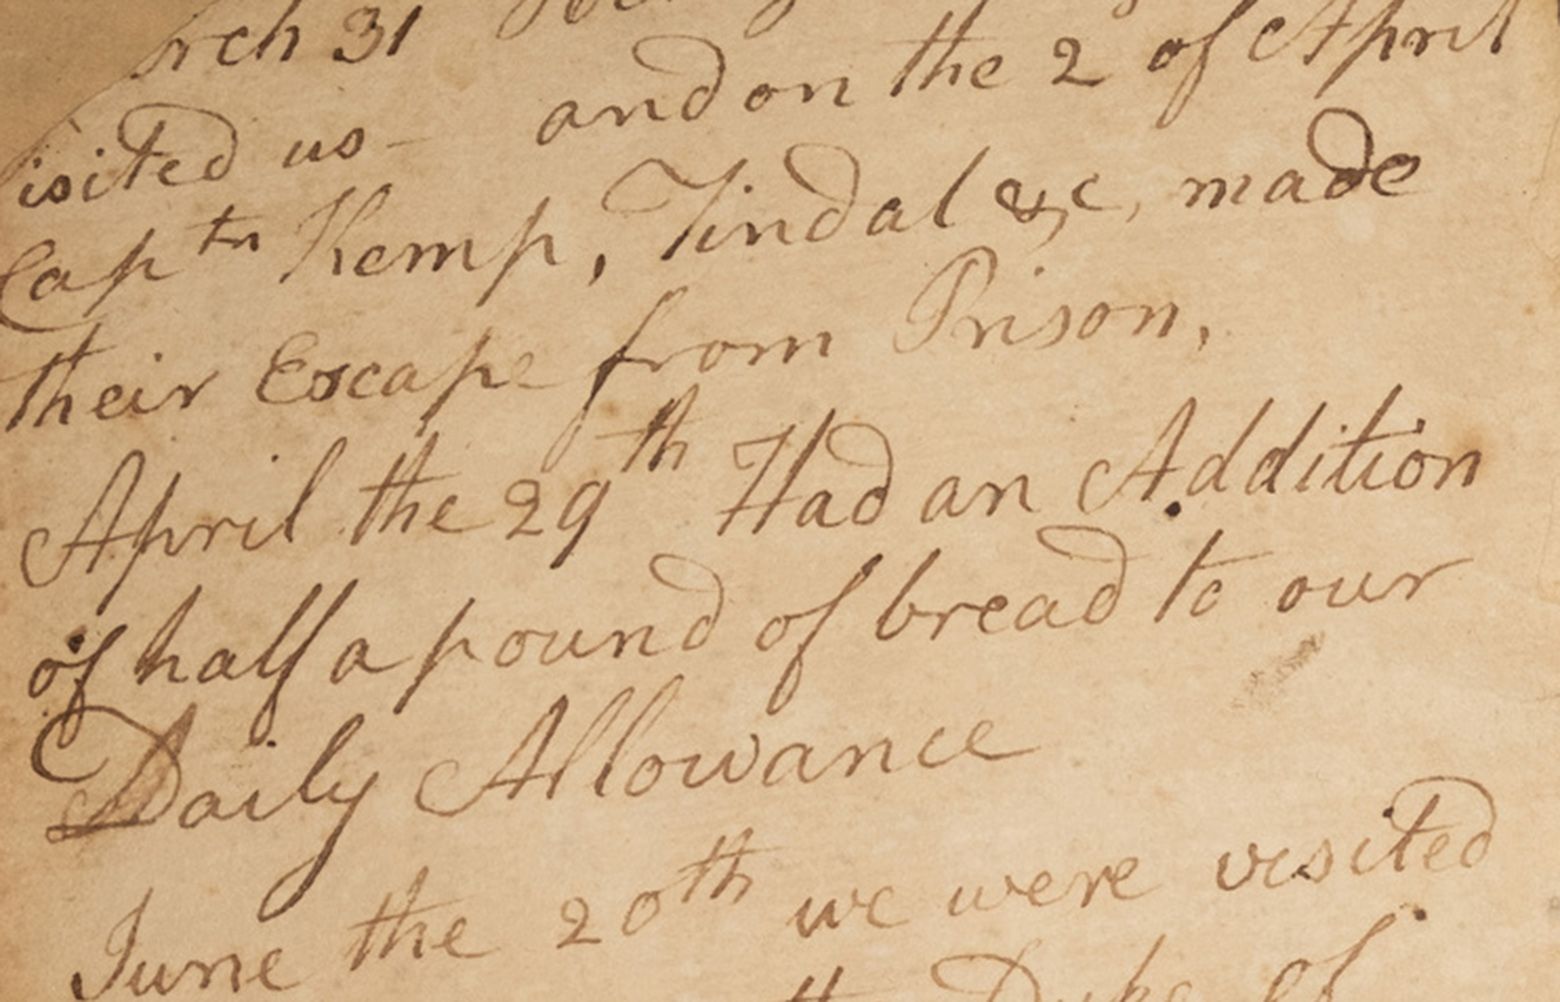 rch 31
isited us - and on the 2 of April
Captn Kemp, Tindal &c, made
their Escape from Prison,
April the 29th Had an Addition
of half a pound of bread to our
Daily Allowance
June the 20th we were visited
Duke of